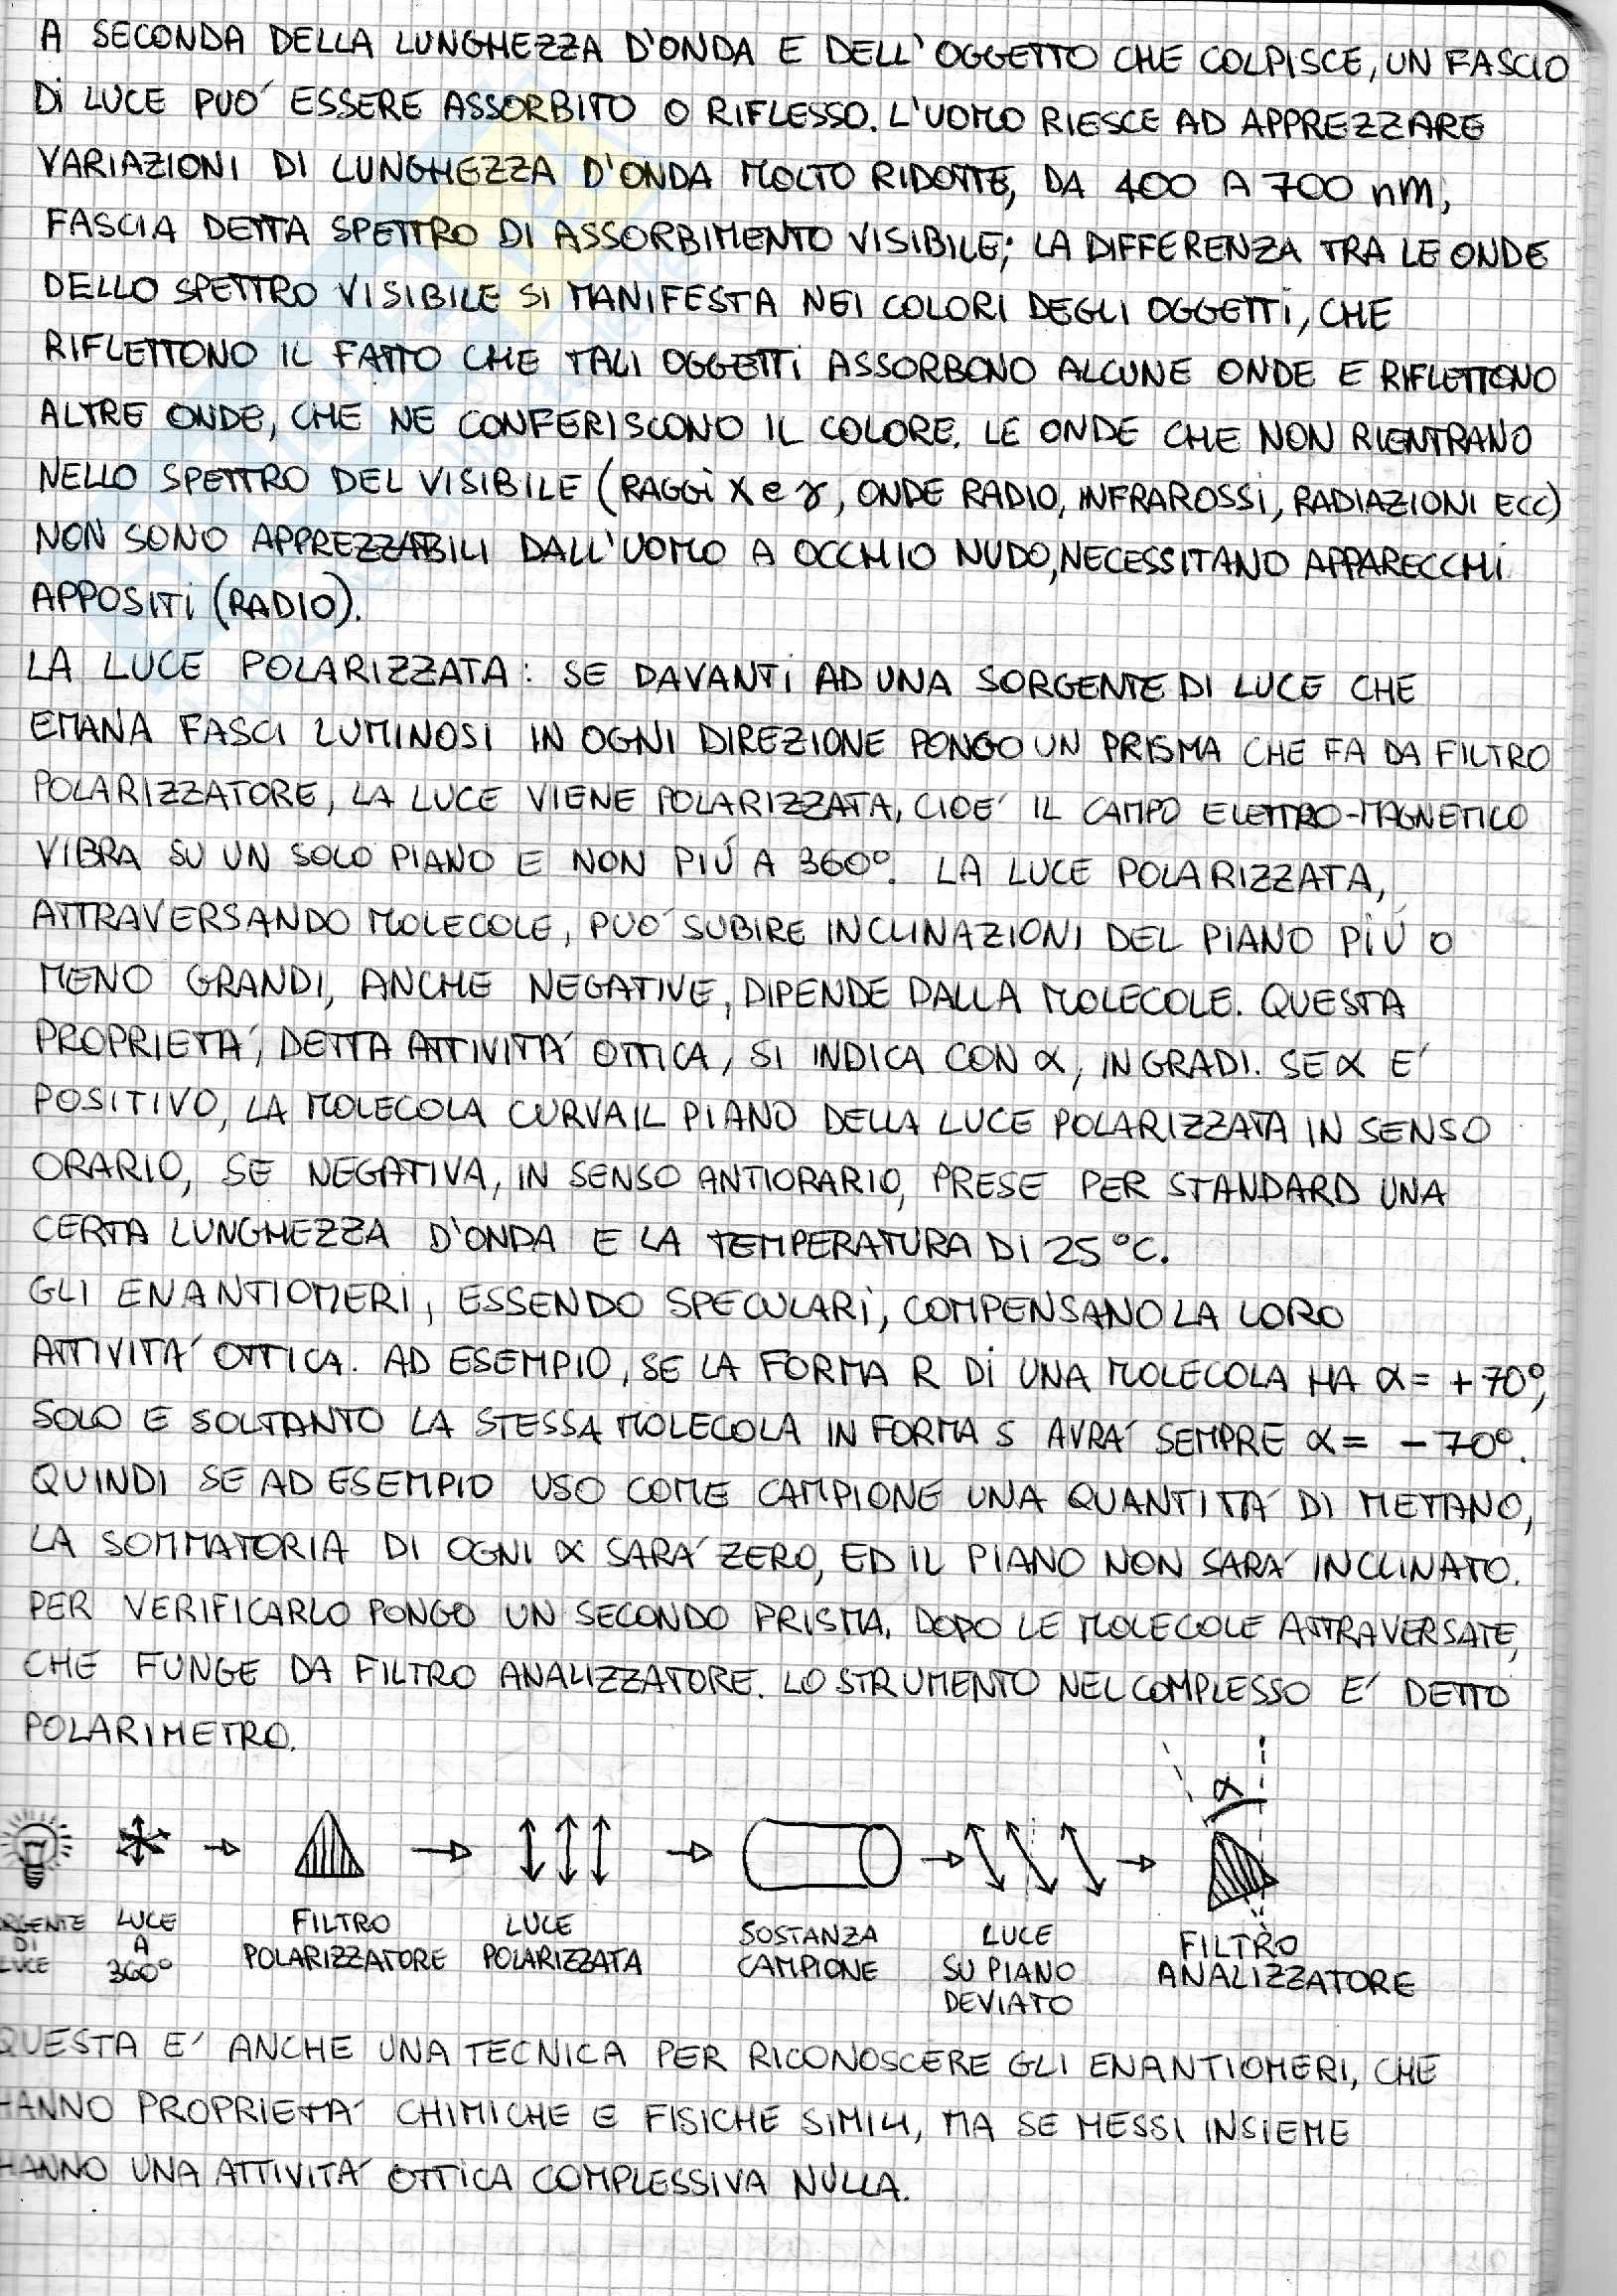 A SECONDA DELLA LUNGHEZZA D'ONDA E DELL'OGGETTO CHE COLPISCE, UN FASCIO
DI LUCE PUO' ESSERE ASSORBITO O RIFLESSO. L'UOMO RIESCE AD APPREZZARE
VARIAZIONI DI LUNGHEZZA D'ONDA MOLTO RIDOTTE, DA 400 A 700 nm,
FASCIA DETTA SPETTRO DI ASSORBIMENTO VISIBILE; LA DIFFERENZA TRA LE ONDE
DELLO SPETTRO VISIBILE SI MANIFESTA NEI COLORI DEGLI OGGETTI, CHE
RIFLETTONO IL FATTO CHE TALI OGGETTI ASSORBONO ALCUNE ONDE E RIFLETTONO
ALTRE ONDE, CHE NE CONFERISCONO IL COLORE. LE ONDE CHE NON RIENTRANO
NELLO SPETTRO DEL VISIBILE (RAGGI X e γ, ONDE RADIO, INFRAROSSI, RADIAZIONI ECC)
NON SONO APPREZZABILI DALL'UOMO A OCCHIO NUDO, NECESSITANO APPARECCHI
APPOSITI (RADIO).
LA LUCE POLARIZZATA: SE DAVANTI AD UNA SORGENTE DI LUCE CHE
EMANA FASCI LUMINOSI IN OGNI DIREZIONE PONGO UN PRISMA CHE FA DA FILTRO
POLARIZZATORE, LA LUCE VIENE POLARIZZATA, CIOE' IL CAMPO ELETTRO-MAGNETICO
VIBRA SU UN SOLO PIANO E NON PIÚ A 360°. LA LUCE POLARIZZATA,
ATTRAVERSANDO MOLECOLE, PUO' SUBIRE INCLINAZIONI DEL PIANO PIÚ O
MENO GRANDI, ANCHE NEGATIVE, DIPENDE DALLA MOLECOLE. QUESTA
PROPRIETA', DETTA ATTIVITA' OTTICA, SI INDICA CON α, IN GRADI. SE α E'
POSITIVO, LA MOLECOLA CURVA IL PIANO DELLA LUCE POLARIZZATA IN SENSO
ORARIO, SE NEGATIVA, IN SENSO ANTIORARIO, PRESE PER STANDARD UNA
CERTA LUNGHEZZA D'ONDA E LA TEMPERATURA DI 25°C.
GLI ENANTIOMERI, ESSENDO SPECULARI, COMPENSANO LA LORO
ATTIVITA' OTTICA. AD ESEMPIO, SE LA FORMA R DI UNA MOLECOLA HA α= +70°,
SOLO E SOLTANTO LA STESSA MOLECOLA IN FORMA S AVRA' SEMPRE α= -70°.
QUINDI SE AD ESEMPIO USO COME CAMPIONE UNA QUANTITA' DI METANO,
LA SOMMATORIA DI OGNI α SARA' ZERO, ED IL PIANO NON SARA' INCLINATO.
PER VERIFICARLO PONGO UN SECONDO PRISMA, DOPO LE MOLECOLE ATTRAVERSATE,
CHE FUNGE DA FILTRO ANALIZZATORE. LO STRUMENTO NEL COMPLESSO E' DETTO
POLARIMETRO.
α
ORGENTE DI LUCE
LUCE A 360°
FILTRO POLARIZZATORE
LUCE POLARIZZATA
SOSTANZA CAMPIONE
LUCE SU PIANO DEVIATO
FILTRO ANALIZZATORE
QUESTA E' ANCHE UNA TECNICA PER RICONOSCERE GLI ENANTIOMERI, CHE
HANNO PROPRIETA' CHIMICHE E FISICHE SIMILI, MA SE MESSI INSIEME
HANNO UNA ATTIVITA' OTTICA COMPLESSIVA NULLA.